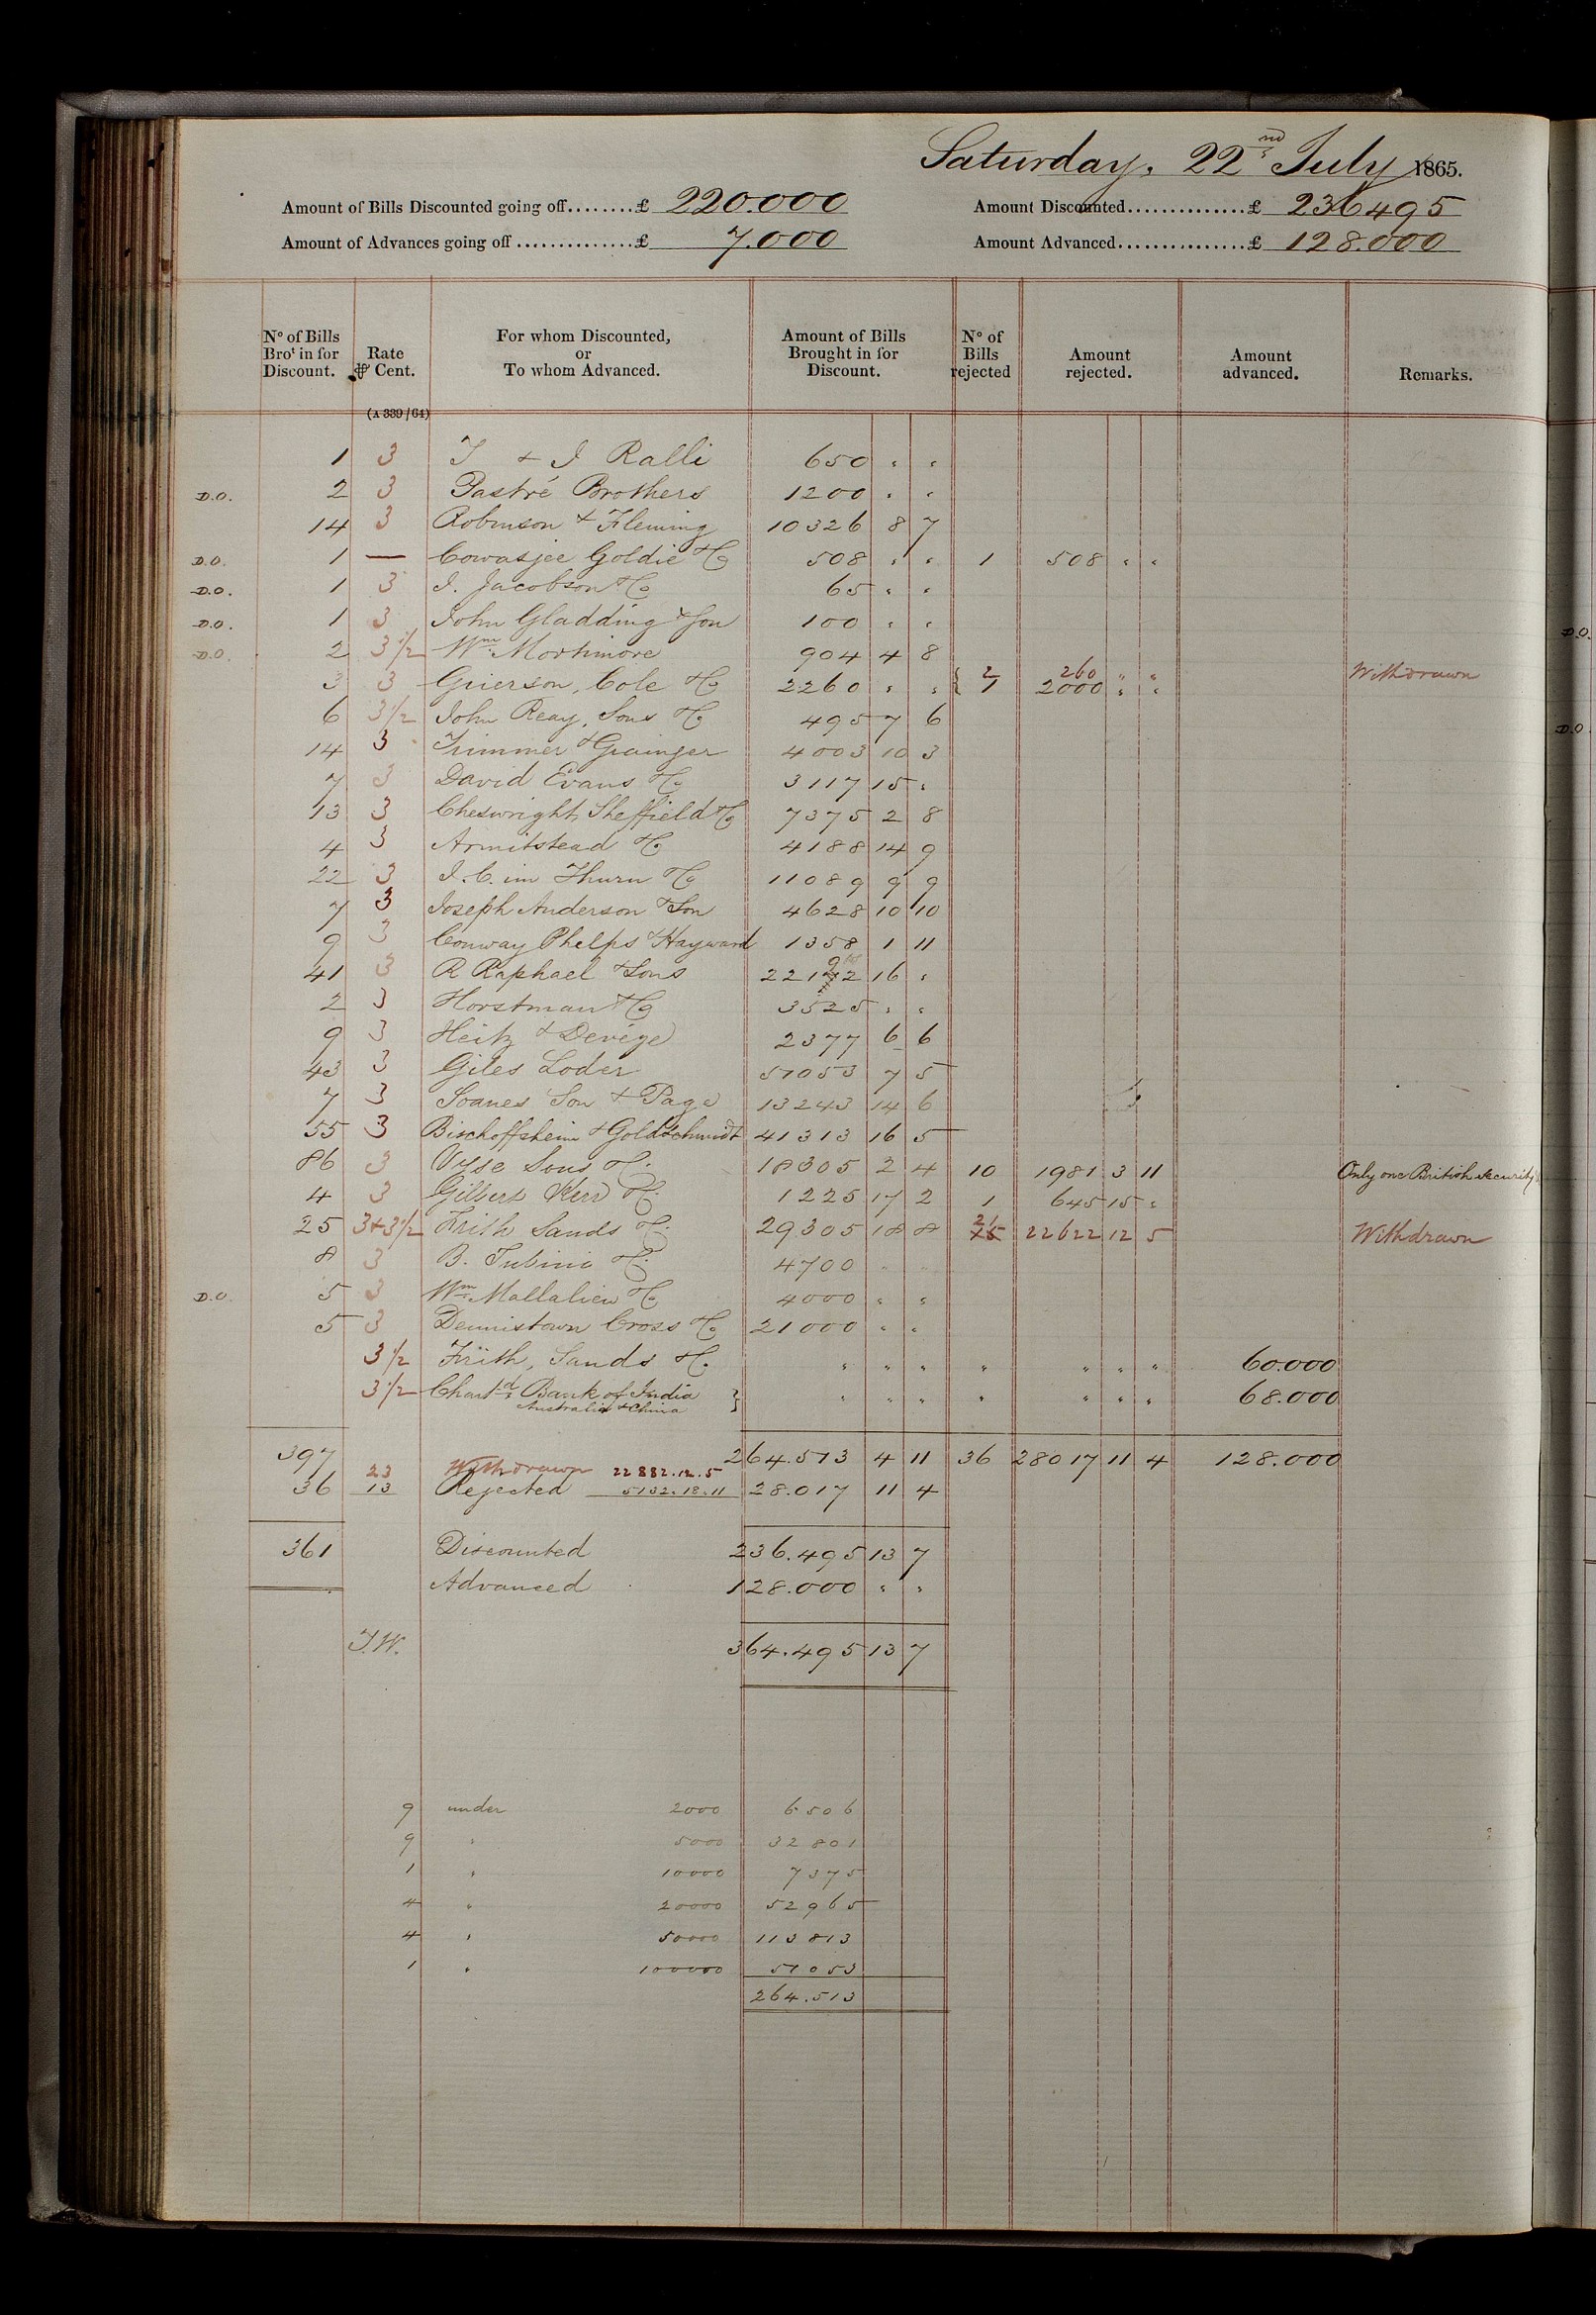 Saturday, 22nd July 1865.
Amount of Bills Discounted going off........£ 220.000 Amount Discounted..............£ 236495
Amount of Advances going off..............£ 7.000 Amount Advanced................£ 128.000
No of Bills Brot in for Discount. Rate ⅌ Cent. For whom Discounted, or To whom Advanced. Amount of Bills Brought in for Discount. No of Bills rejected Amount rejected. Amount advanced. Remarks.
(A 339/64)
1 3 T & J Ralli 650 " "
D.O. 2 3 Pastré Brothers 1200 " "
14 3 Robinson & Fleming 10326 8 7
D.O. 1 — Cowasjee Goldie & Co 508 " " 1 508 " "
D.O. 1 3 J. Jacobson & Co 65 " "
D.O. 1 3 John Gladding & Son 100 " "
D.O. 2 3 1/2 Wm Mortimore 904 4 8
3 3 Grierson, Cole & Co 2260 " " { 2 260 " " Withdrawn
1 2000 " "
6 3 1/2 John Reay, Sons & Co 495 7 6
14 3 Trimmer & Grainger 4003 10 3
7 3 David Evans & Co 3117 15 "
13 3 Cheswright Sheffield & Co 7375 2 8
4 3 Armitstead & Co 4188 14 9
22 3 J. C. im Thurn & Co 11089 9 9
7 3 Joseph Anderson & Son 4628 10 10
9 3 Conway Phelps & Hayward 1358 1 11
41 3 R Raphael & Sons 22192 16 "
2 3 Horstman & Co 3525 " "
9 3 Heitz & Devége 2377 6 6
43 3 Giles Loder 51053 7 5
7 3 Soanes Son & Page 13243 14 6
55 3 Bischoffsheim & Goldschmidt 41313 16 5
86 3 Vyse Sons & Co 18305 2 4 10 1981 3 11 Only one British security
4 3 Gilbert Kerr & Co 1225 17 2 1 645 15 "
25 3 & 3 1/2 Frith Sands & Co 29305 18 8 21 22622 12 5 Withdrawn
8 3 B. Tubino & Co 4700 " "
D.O. 5 3 Wm Mallalieu & Co 4000 " "
5 3 Dennistown Cross & Co 21000 " "
3 1/2 Frith, Sands & Co " " " " " " " 60.000
3 1/2 Chartd Bank of India } " " " " " " " 68.000
Australia & China
397 264.513 4 11 36 28017 11 4 128.000
23 Withdrawn 22882.12.5
36 13 Rejected 5132.18.11 28.017 11 4
361 Discounted 236.495 13 7
Advanced 128.000 " "
J.W. 364.495 13 7
9 under 2000 6506
9 " 5000 32801
1 " 10000 7375
4 " 20000 52965
4 " 50000 113813
1 " 100000 51053
264.513